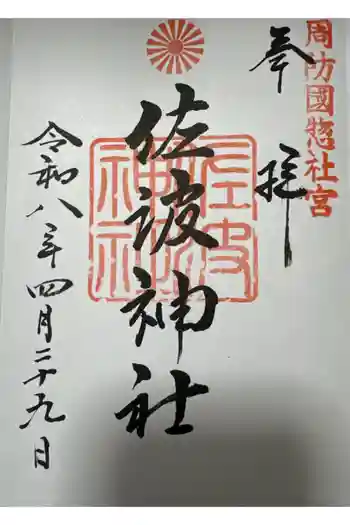 周防國惣社宮
奉拝
佐波神社
佐波神社
令和八年四月二十九日